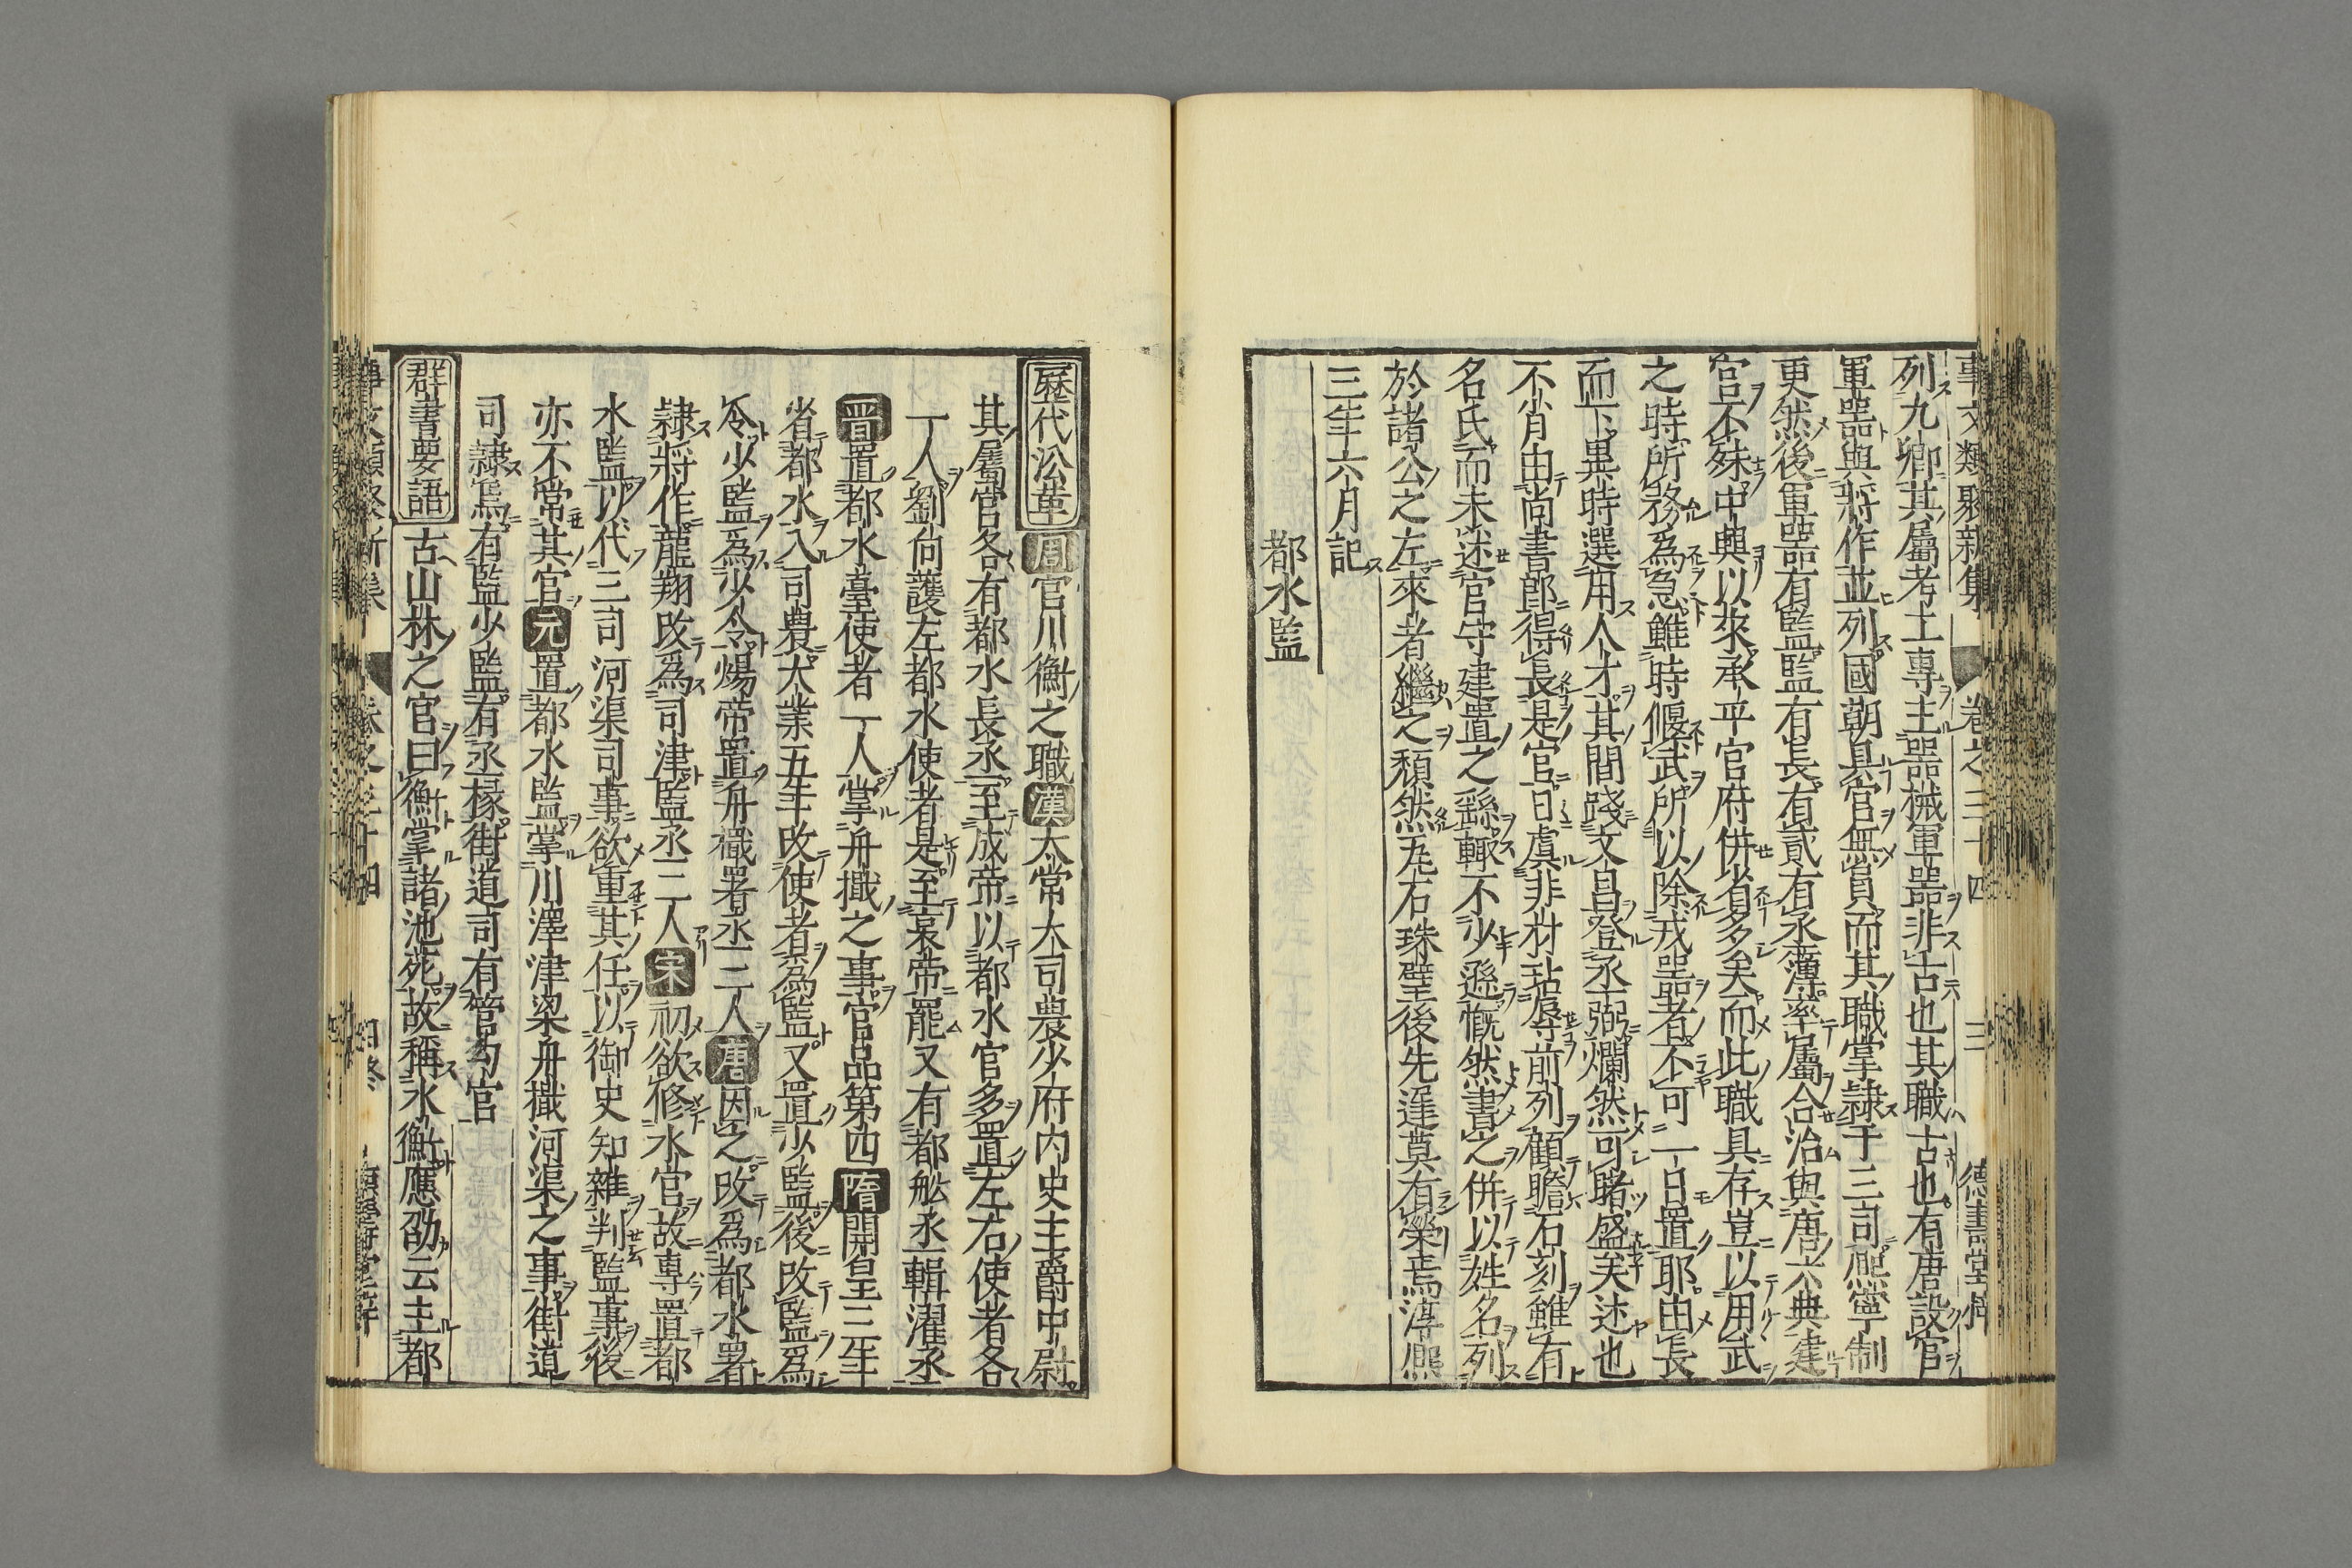 事文類聚新集 卷之三十四 三 德壽堂梓
列九卿其屬考工專主器械軍器非古也其職古也有唐設官
軍器與將作並列國朝具官無員而其職掌隷于三司熈寧制
更然後軍器有監監有長有貳有丞薄率屬合治與唐六典建
官不殊中興以來承平官府併省多矣而此職具存豈以用武
之時所務為急雖時偃武所以除戎器者不可一日置耶由長
而下異時選用人才其間踐文昌登丞弼爛然可睹盛矣述也
不肖由尚書郎得長是官日虞非材玷辱前列顧瞻石刻雖有
名氏而未述官守建置之繇輙不少遜慨然書之併以姓名列
於諸公之左來者繼之頹然一石珠璧後先遙莫有榮焉淳熈
三年六月記
都水監
歷代㳂革 周官川衡之職漢太常大司農少府內史主爵中尉
其屬官各有都水長丞至成帝以都水官多置左右使者各
一人劉向護左都水使者是至哀帝罷又有都舩丞輯濯丞
晉置都水臺使者一人掌舟檝之事官品第四隋開皇三年
省都水入司農大業五年改使者為監又置少監後改監爲
令少監爲少令煬帝置舟檝署丞二人唐因之改爲都水署
隷將作龍翔改爲司津監丞二人宋初欲修水官故專置都
水監以代三司河渠司事欲重其任以御史知雜判監事後
亦不常其官元置都水監掌川澤津梁舟檝河渠之事街道
司隷焉有監少監有丞椽街道司有管勾官
群書要語 古山林之官曰衡掌諸池苑故稱水衡應劭云主都